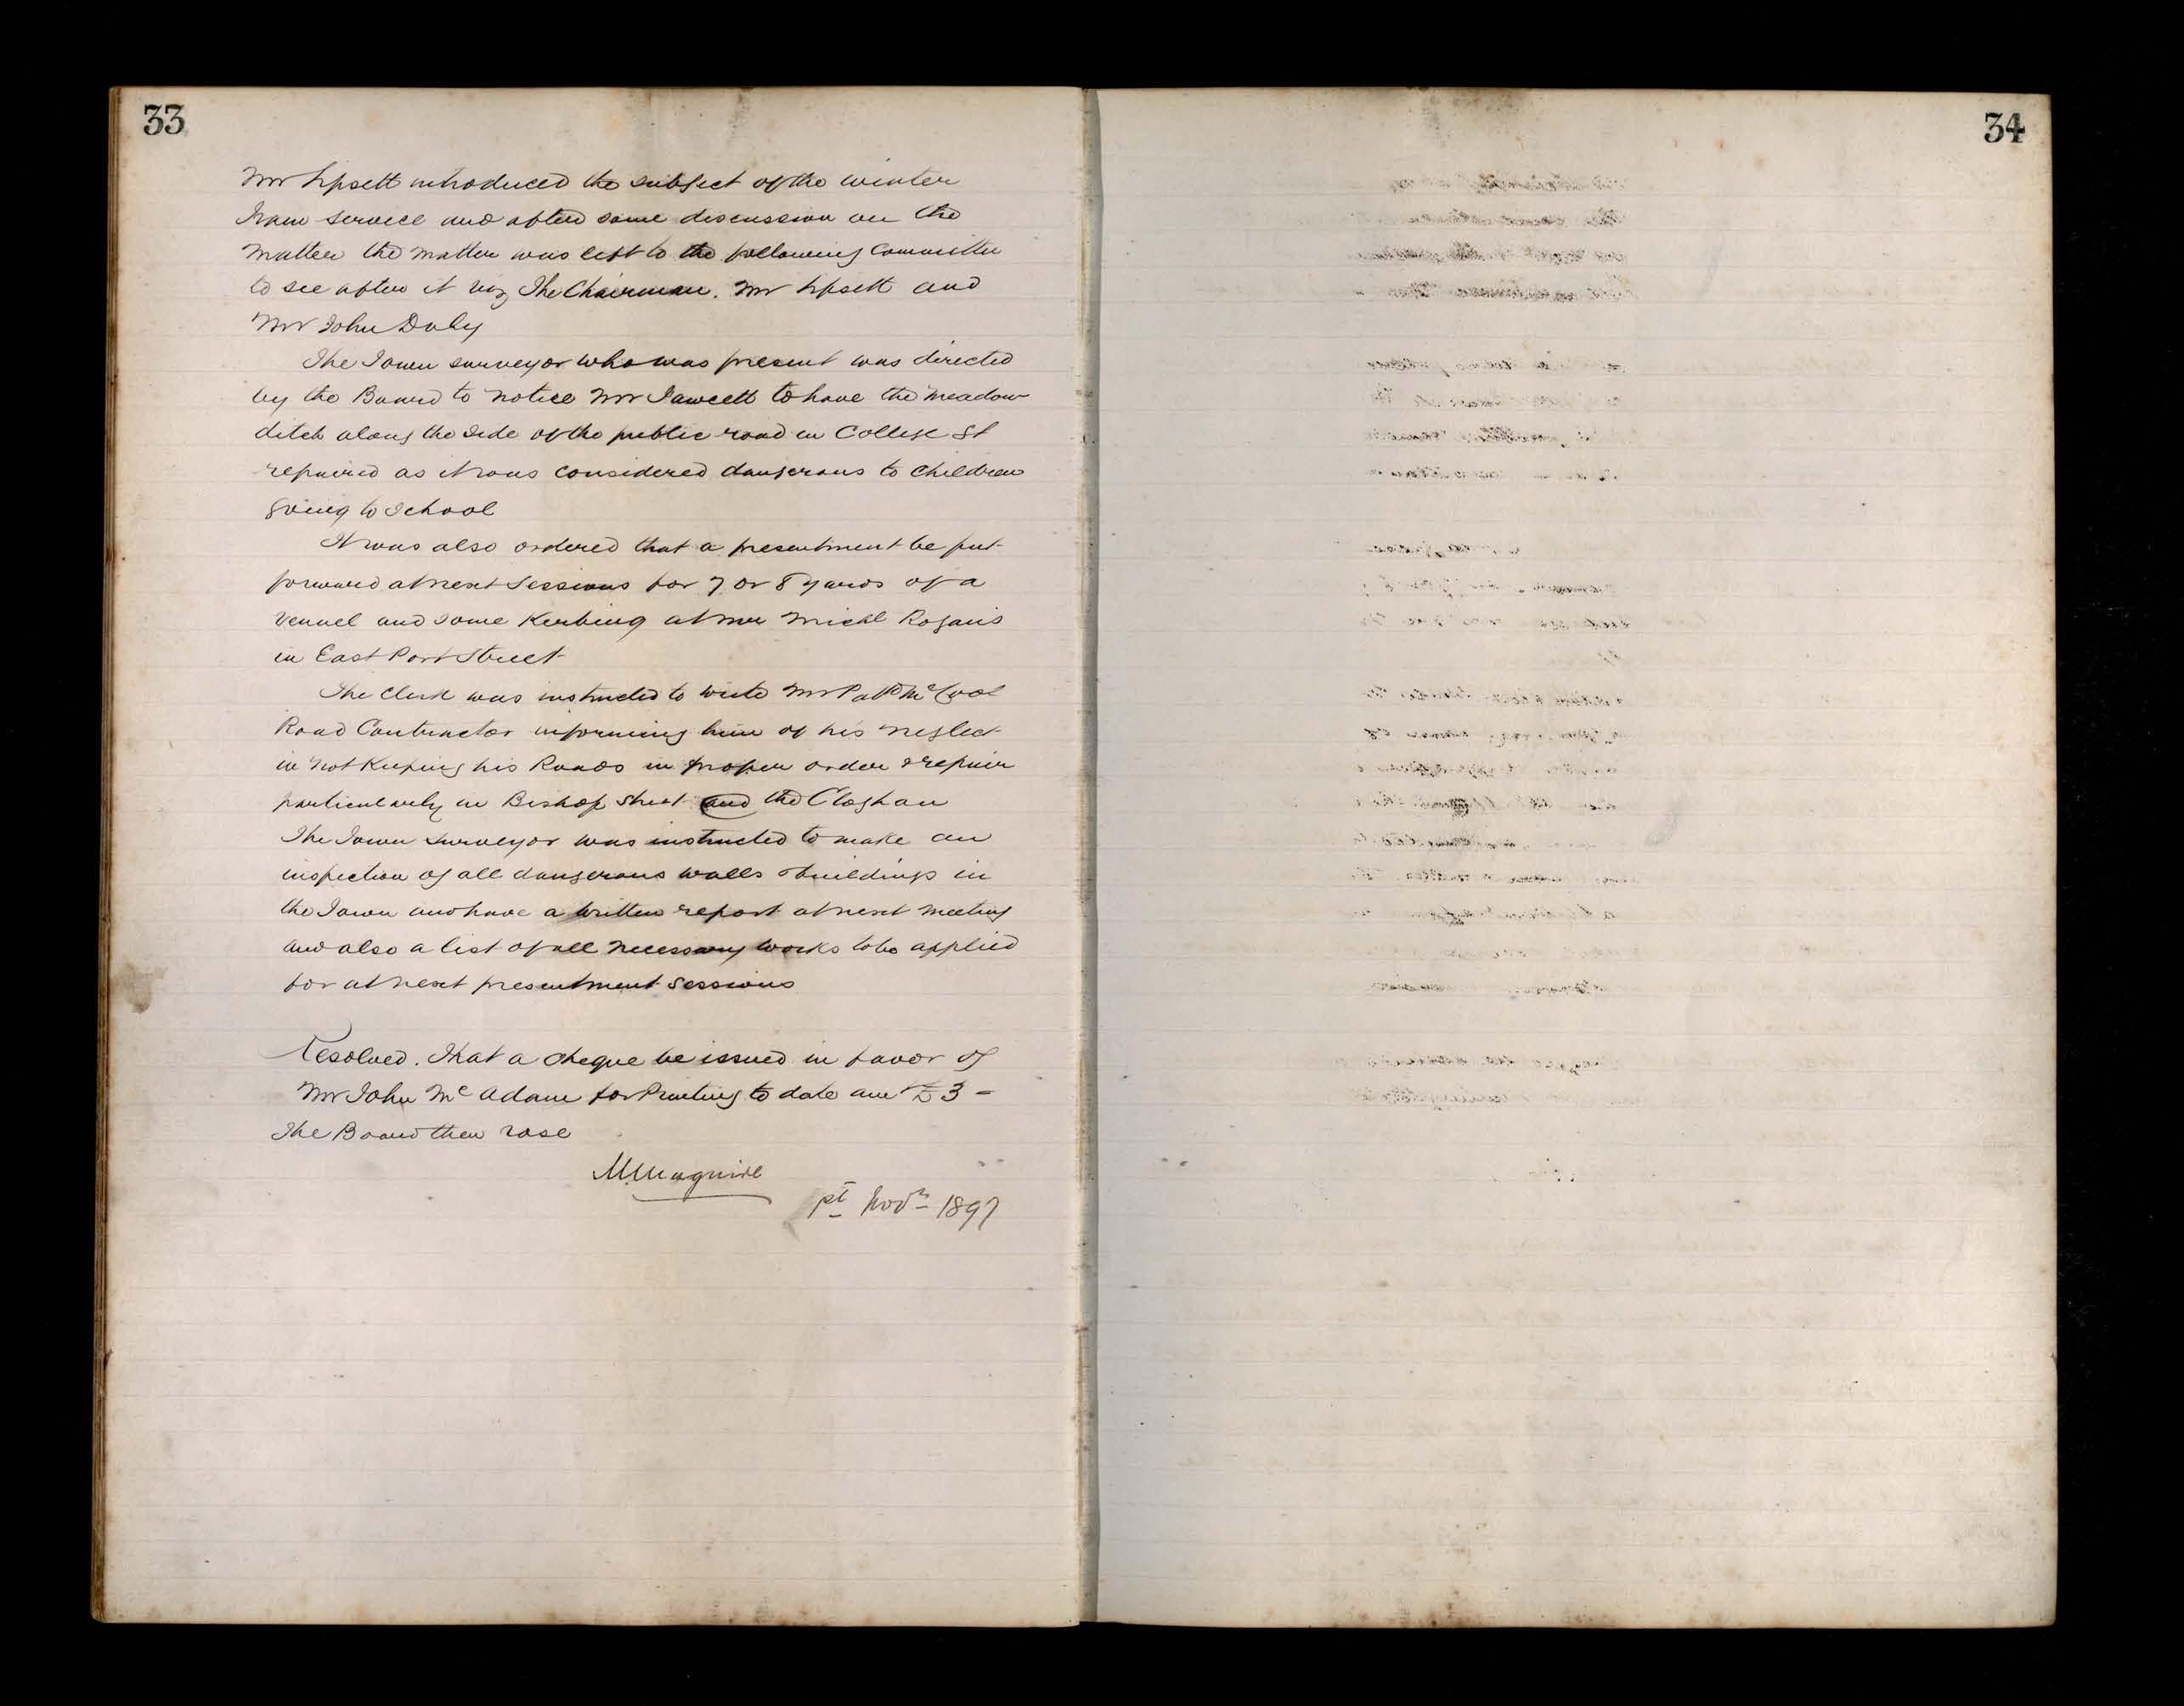 33
Mr Lipsett introduced the subject of the winter
Train service and after some discussion on the
matter the matter was left to the following Committee
to see after it viz The Chairman. Mr Lipsett and
Mr John Daly
The Town surveyor who was present was directed
by the Board to notice Mr Fawcett to have the meadow
ditch along the side of the public road in College St
repaired as it was considered dangerous to children
going to school
It was also ordered that a presentment be put
forward at next Sessions for 7 or 8 yards of a
vennel and some Kerbing at Mr Michl Rogans
in East Port Street
The Clerk was instructed to write Mr Patk McCool
Road Contractor informing him of his neglect
in not Keeping his Roads in proper order & repair
particularly in Bishop Street and the Cloghan
The Town surveyor was instructed to make an
inspection of all dangerous walls & buildings in
the Town and have a written report at next meeting
and also a list of all necessary works to be applied
for at next presentment sessions
Resolved. That a cheque be issued in favor of
Mr John McAdam for Printing to date amt £3 –
The Board then rose
M. Maguire
1st Novr 1897
34